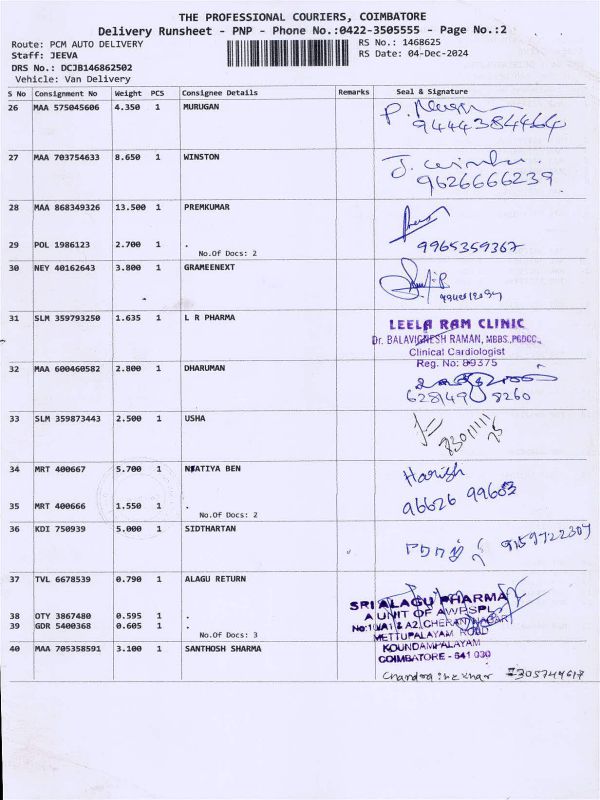 THE PROFESSIONAL COURIERS, COIMBATORE
Delivery Runsheet - PNP - Phone No.:0422-3505555 - Page No.:2
Route: PCM AUTO DELIVERY RS No.: 1468625
Staff: JEEVA RS Date: 04-Dec-2024
DRS No.: DCJB146862502
Vehicle: Van Delivery
S No Consignment No Weight PCS Consignee Details Remarks Seal & Signature
26 MAA 575045606 4.350 1 MURUGAN
9444384464
27 MAA 703754633 8.650 1 WINSTON
9626666239
28 MAA 868349326 13.500 1 PREMKUMAR
29 POL 1986123 2.700 1 . 9965359367
No.Of Docs: 2
30 NEY 40162643 3.800 1 GRAMEENEXT
31 SLM 359793250 1.635 1 L R PHARMA
LEELA RAM CLINIC
Dr. BALAVIGNESH RAMAN, MBBS.,PGDCC.,
Clinical Cardiologist
Reg. No: 89375
32 MAA 600460582 2.800 1 DHARUMAN
33 SLM 359873443 2.500 1 USHA
34 MRT 400667 5.700 1 Harish
35 MRT 400666 1.550 1 .
No.Of Docs: 2
36 KDI 750939 5.000 1 SIDTHARTAN
9159722307
37 TVL 6678539 0.790 1 ALAGU RETURN
SRI ALAGU PHARMA
A UNIT OF AWPSPL
38 OTY 3867480 0.595 1 .
39 GDR 5400368 0.605 1 .
No.Of Docs: 3
METTUPALAYAM ROAD
KOUNDAMPALAYAM
COIMBATORE - 641 030
40 MAA 705358591 3.100 1 SANTHOSH SHARMA